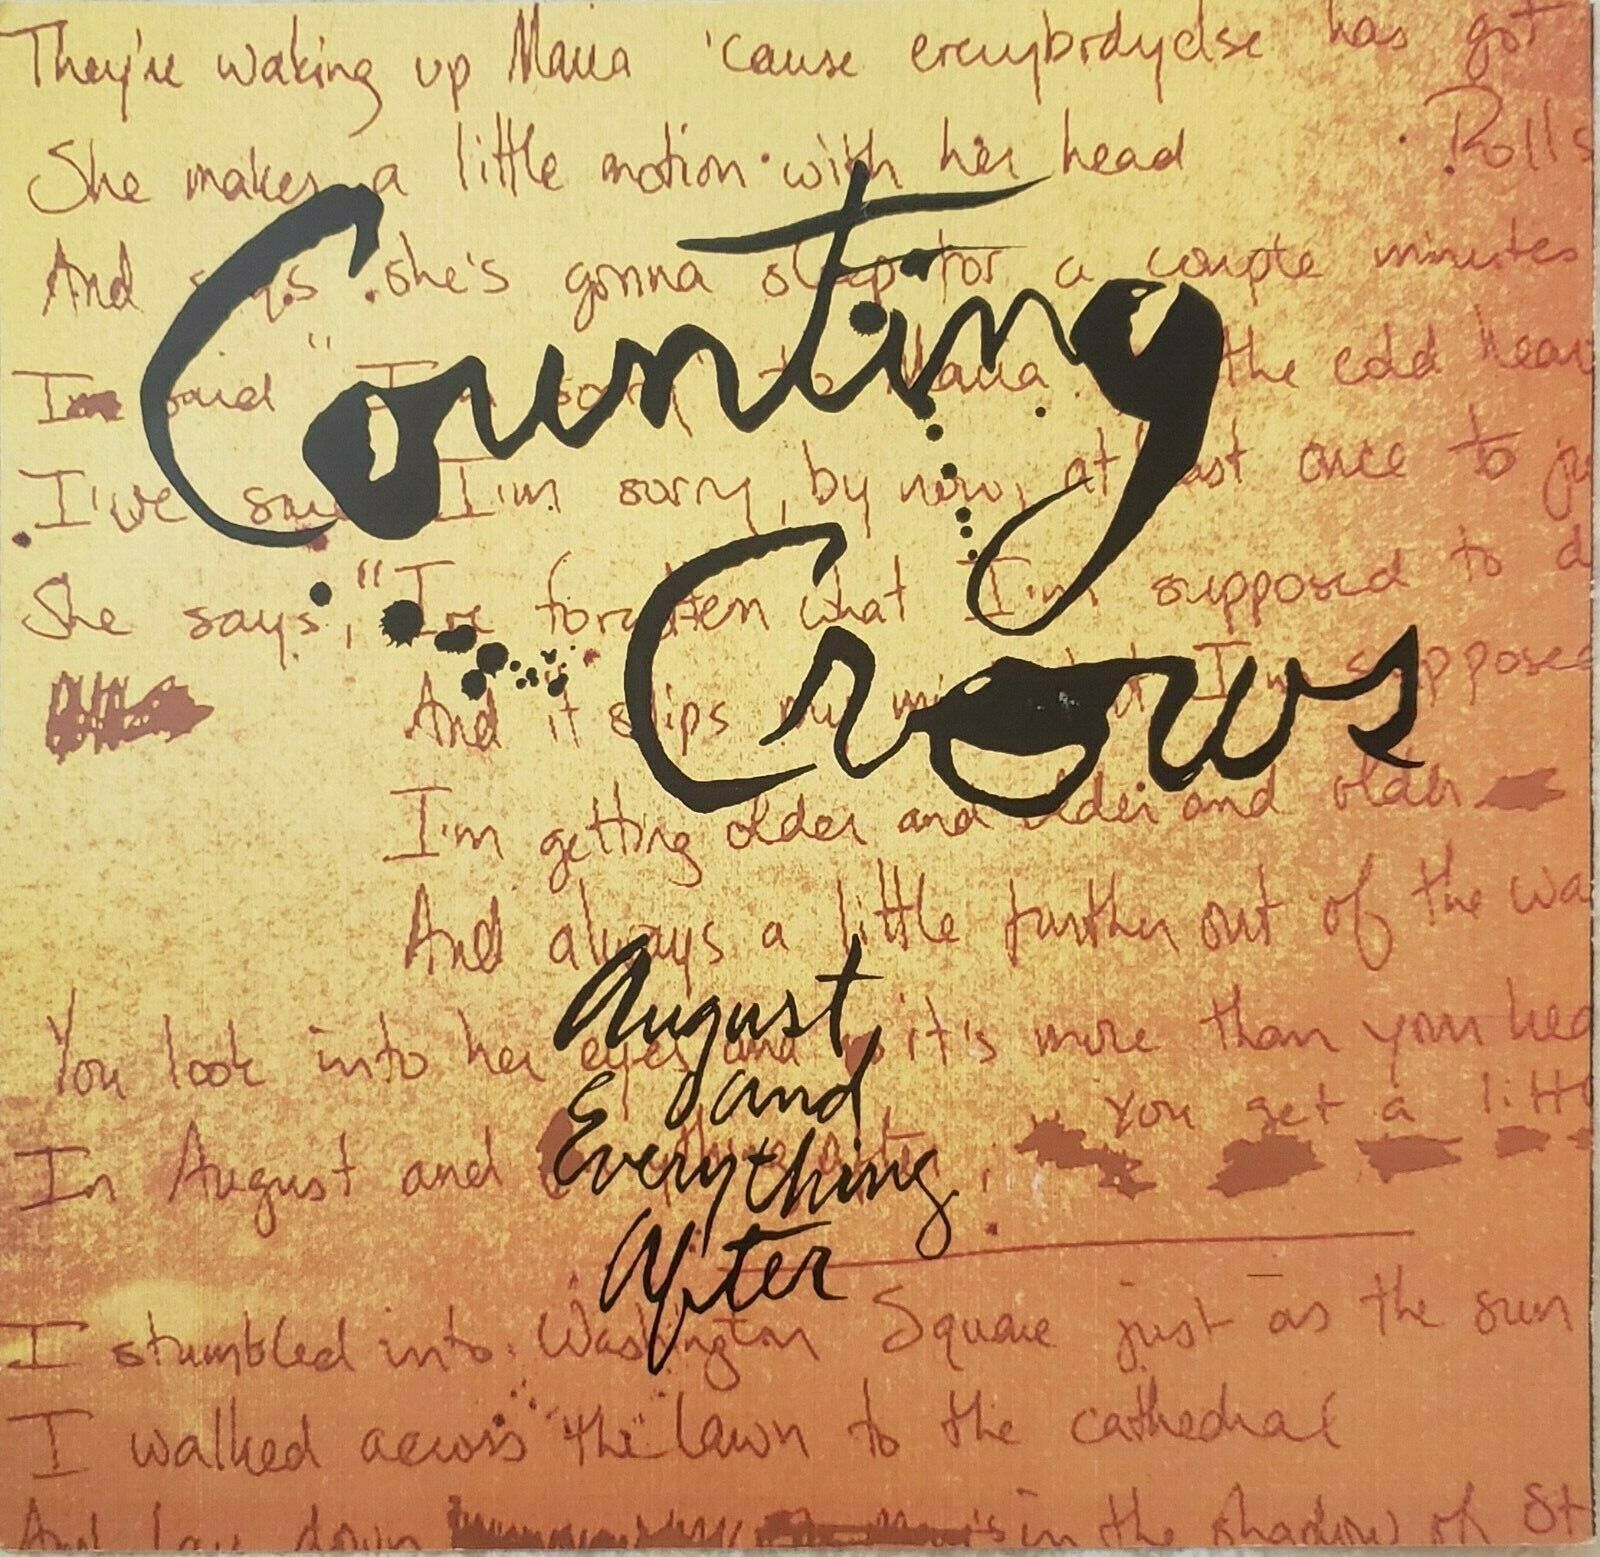 They're waking up Maria 'cause everybodyelse has got
She makes a little motion with her head
Rolls
And says she's gonna sleep for a couple minutes
I said "I'm sorry" to Maria the cold hear
I've said I'm sorry, by now, at least once to
She says, "I've forgotten what I'm supposed to d
And it slips my mind I'm supposed
I'm getting older and older and older
And always a little further out of the wa
You look into her eyes and it's more than your hea
In August and after, You get a littl
I stumbled into Washington Square just as the sun
I walked across the lawn to the cathedral
And lay down in the shadow of St
Counting
Crows
August
and
Everything
After